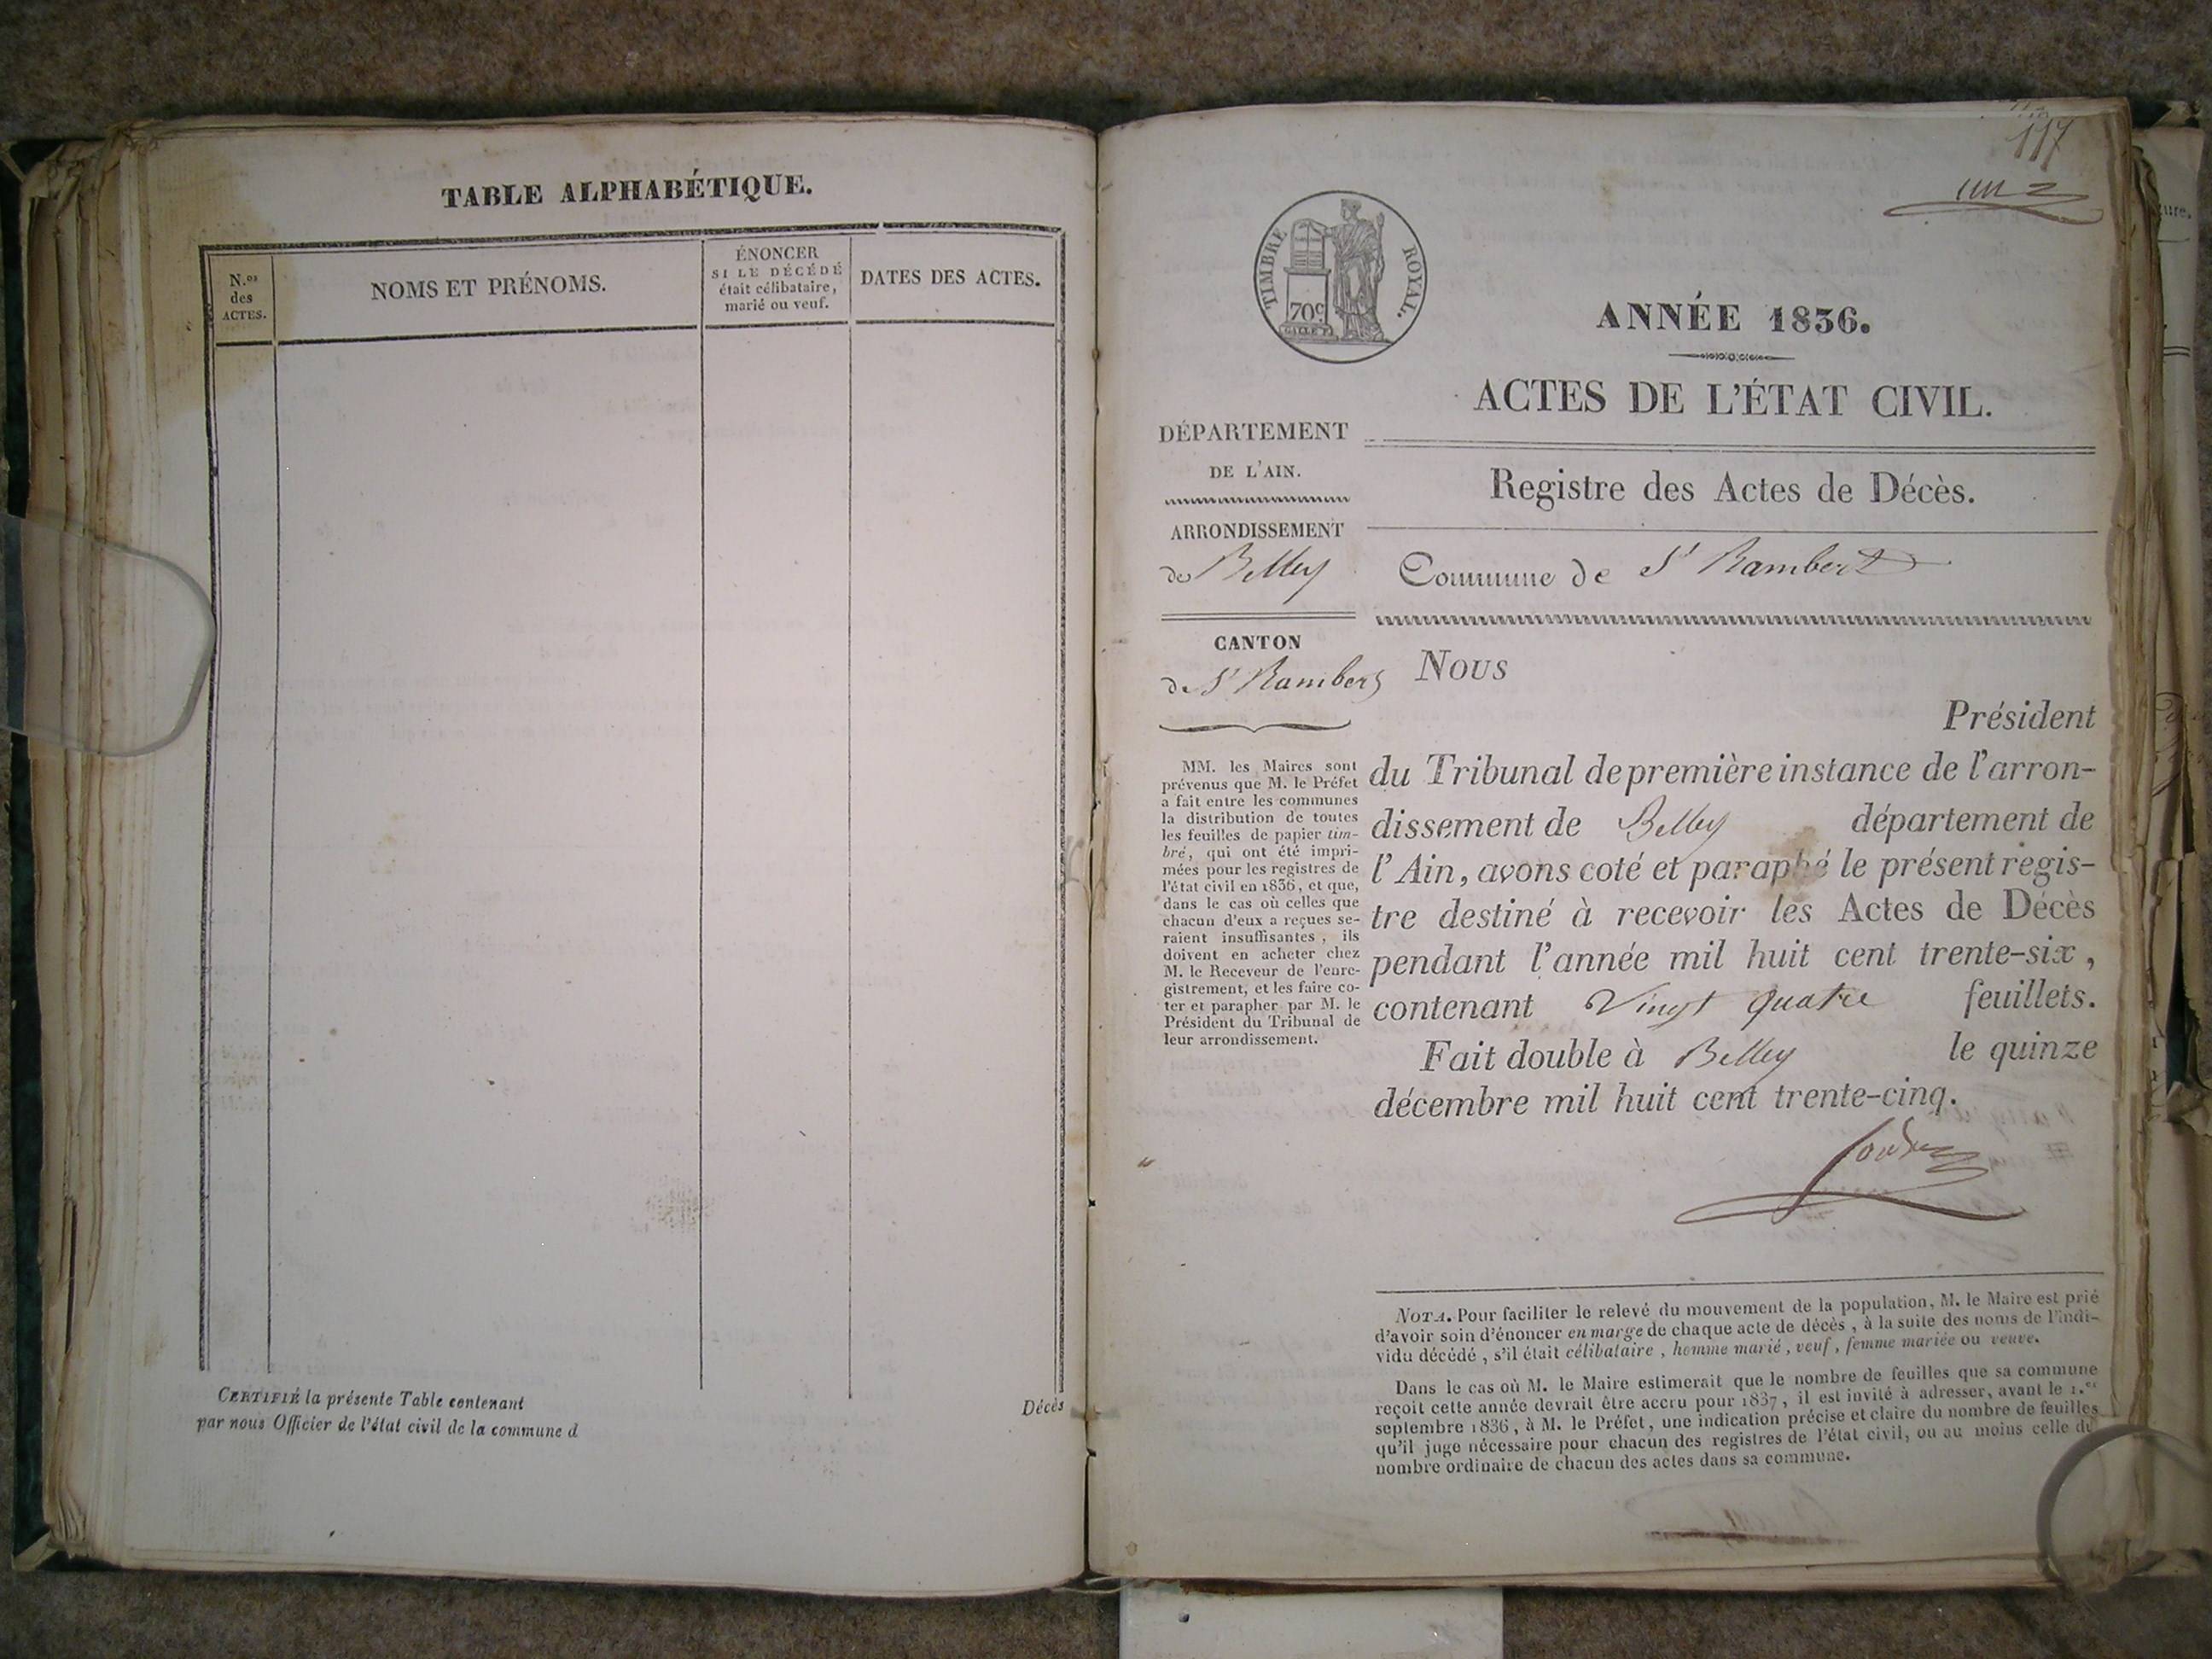 TABLE ALPHABÉTIQUE.
N.os
des
ACTES.
NOMS ET PRÉNOMS.
ÉNONCER
SI LE DÉCÉDÉ
était célibataire,
marié ou veuf.
DATES DES ACTES.
CERTIFIÉ la présente Table contenant
Décès
par nous Officier de l'état civil de la commune d
117
un
TIMBRE ROYAL.
70c
ANNÉE 1836.
ACTES DE L'ÉTAT CIVIL.
DÉPARTEMENT
DE L'AIN.
Registre des Actes de Décès.
ARRONDISSEMENT
de Belley
Commune de St Rambert
CANTON
de St Rambert
MM. les Maires sont
prévenus que M. le Préfet
a fait entre les communes
la distribution de toutes
les feuilles de papier tim-
bré, qui ont été impri-
mées pour les registres de
l'état civil en 1836, et que,
dans le cas où celles que
chacun d'eux a reçues se-
raient insuffisantes, ils
doivent en acheter chez
M. le Receveur de l'enre-
gistrement, et les faire co-
ter et parapher par M. le
Président du Tribunal de
leur arrondissement.
Nous
Président
du Tribunal de première instance de l'arron-
dissement de Belley département de
l'Ain, avons coté et paraphé le présent regis-
tre destiné à recevoir les Actes de Décès
pendant l'année mil huit cent trente-six,
contenant Vingt quatre feuillets.
Fait double à Belley le quinze
décembre mil huit cent trente-cinq.
NOTA. Pour faciliter le relevé du mouvement de la population, M. le Maire est prié
d'avoir soin d'énoncer en marge de chaque acte de décès, à la suite des noms de l'indi-
vidu décédé, s'il était célibataire, homme marié, veuf, femme mariée ou veuve.
Dans le cas où M. le Maire estimerait que le nombre de feuilles que sa commune
reçoit cette année devrait être accru pour 1837, il est invité à adresser, avant le 1.er
septembre 1836, à M. le Préfet, une indication précise et claire du nombre de feuilles
qu'il juge nécessaire pour chacun des registres de l'état civil, ou au moins celle du
nombre ordinaire de chacun des actes dans sa commune.